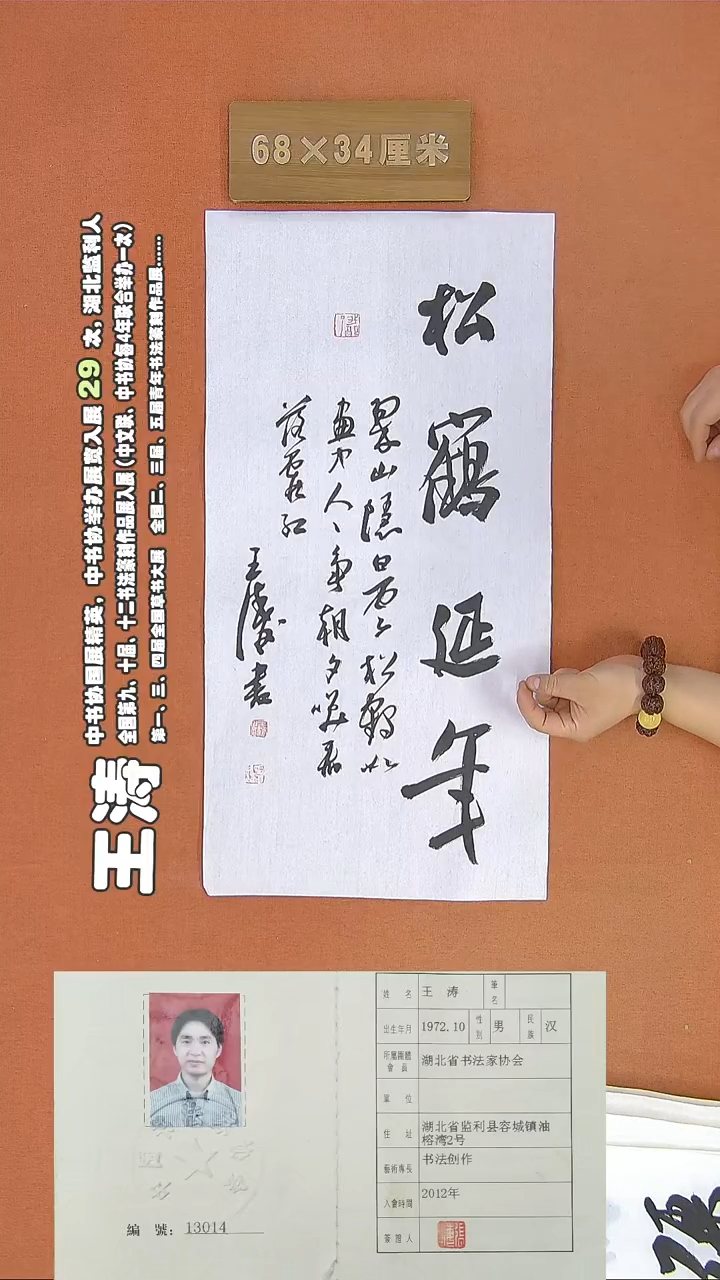 68×34厘米
松鶴延年
翠山隱日
画中人人争朝夕笑看
落霞红
王涛书
王涛
中书协国展精英，中书协举办展赛入展 29 次，湖北监利人
全国第九、十届、十二书法篆刻作品展入展（中文联、中书协每4年联合举办一次）
第一、三、四届全国草书大展 全国二、三届、五届青年书法篆刻作品展……
編 號：13014
姓名 王涛 筆名
出生年月 1972.10 性别 男 民族 汉
所屬團體會員 湖北省书法家协会
單位
住址 湖北省监利县容城镇油榕湾2号
藝術專長 书法创作
入會時間 2012年
簽證人